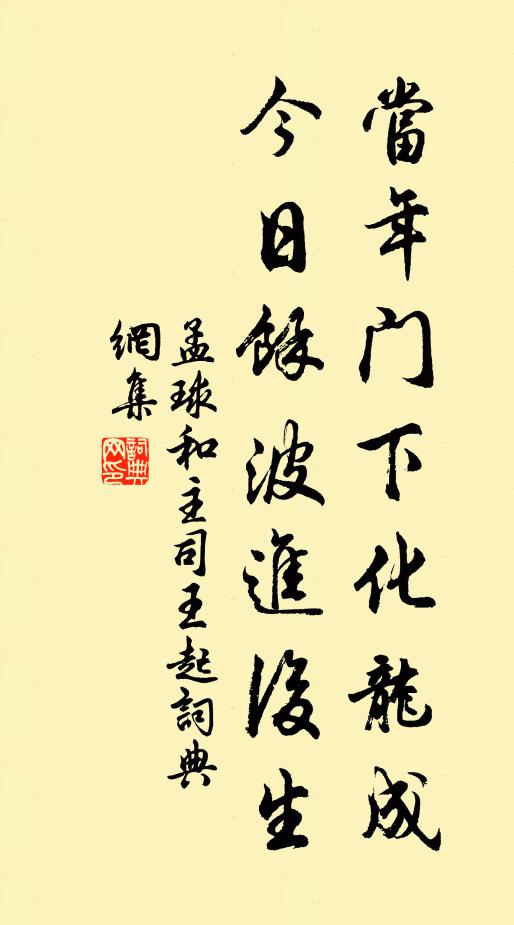 當年門下化龍成
今日餘波進後生
孟球和主司王起詞典
網集
詞典
网印